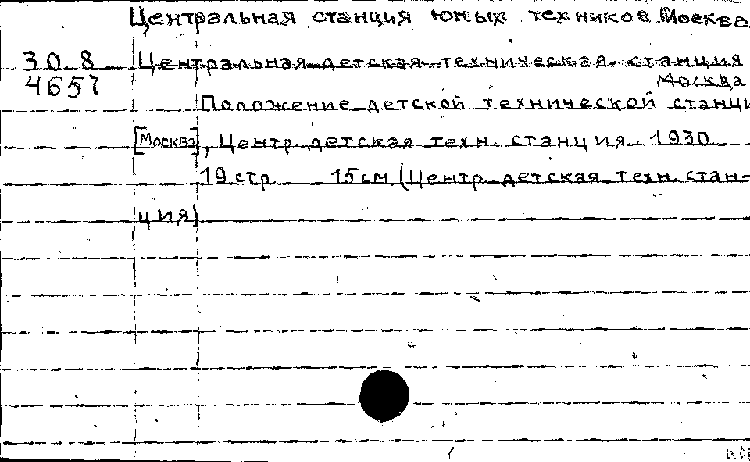 Центральная станция юных техников. Москва
30-8 Центральная детская техническая станция
4657 Москва
Положение детской технической станци
[Москва], Центр. детская техн. станция. 1930
19 стр. 15 см (Центр. детская техн. стан-
ция)